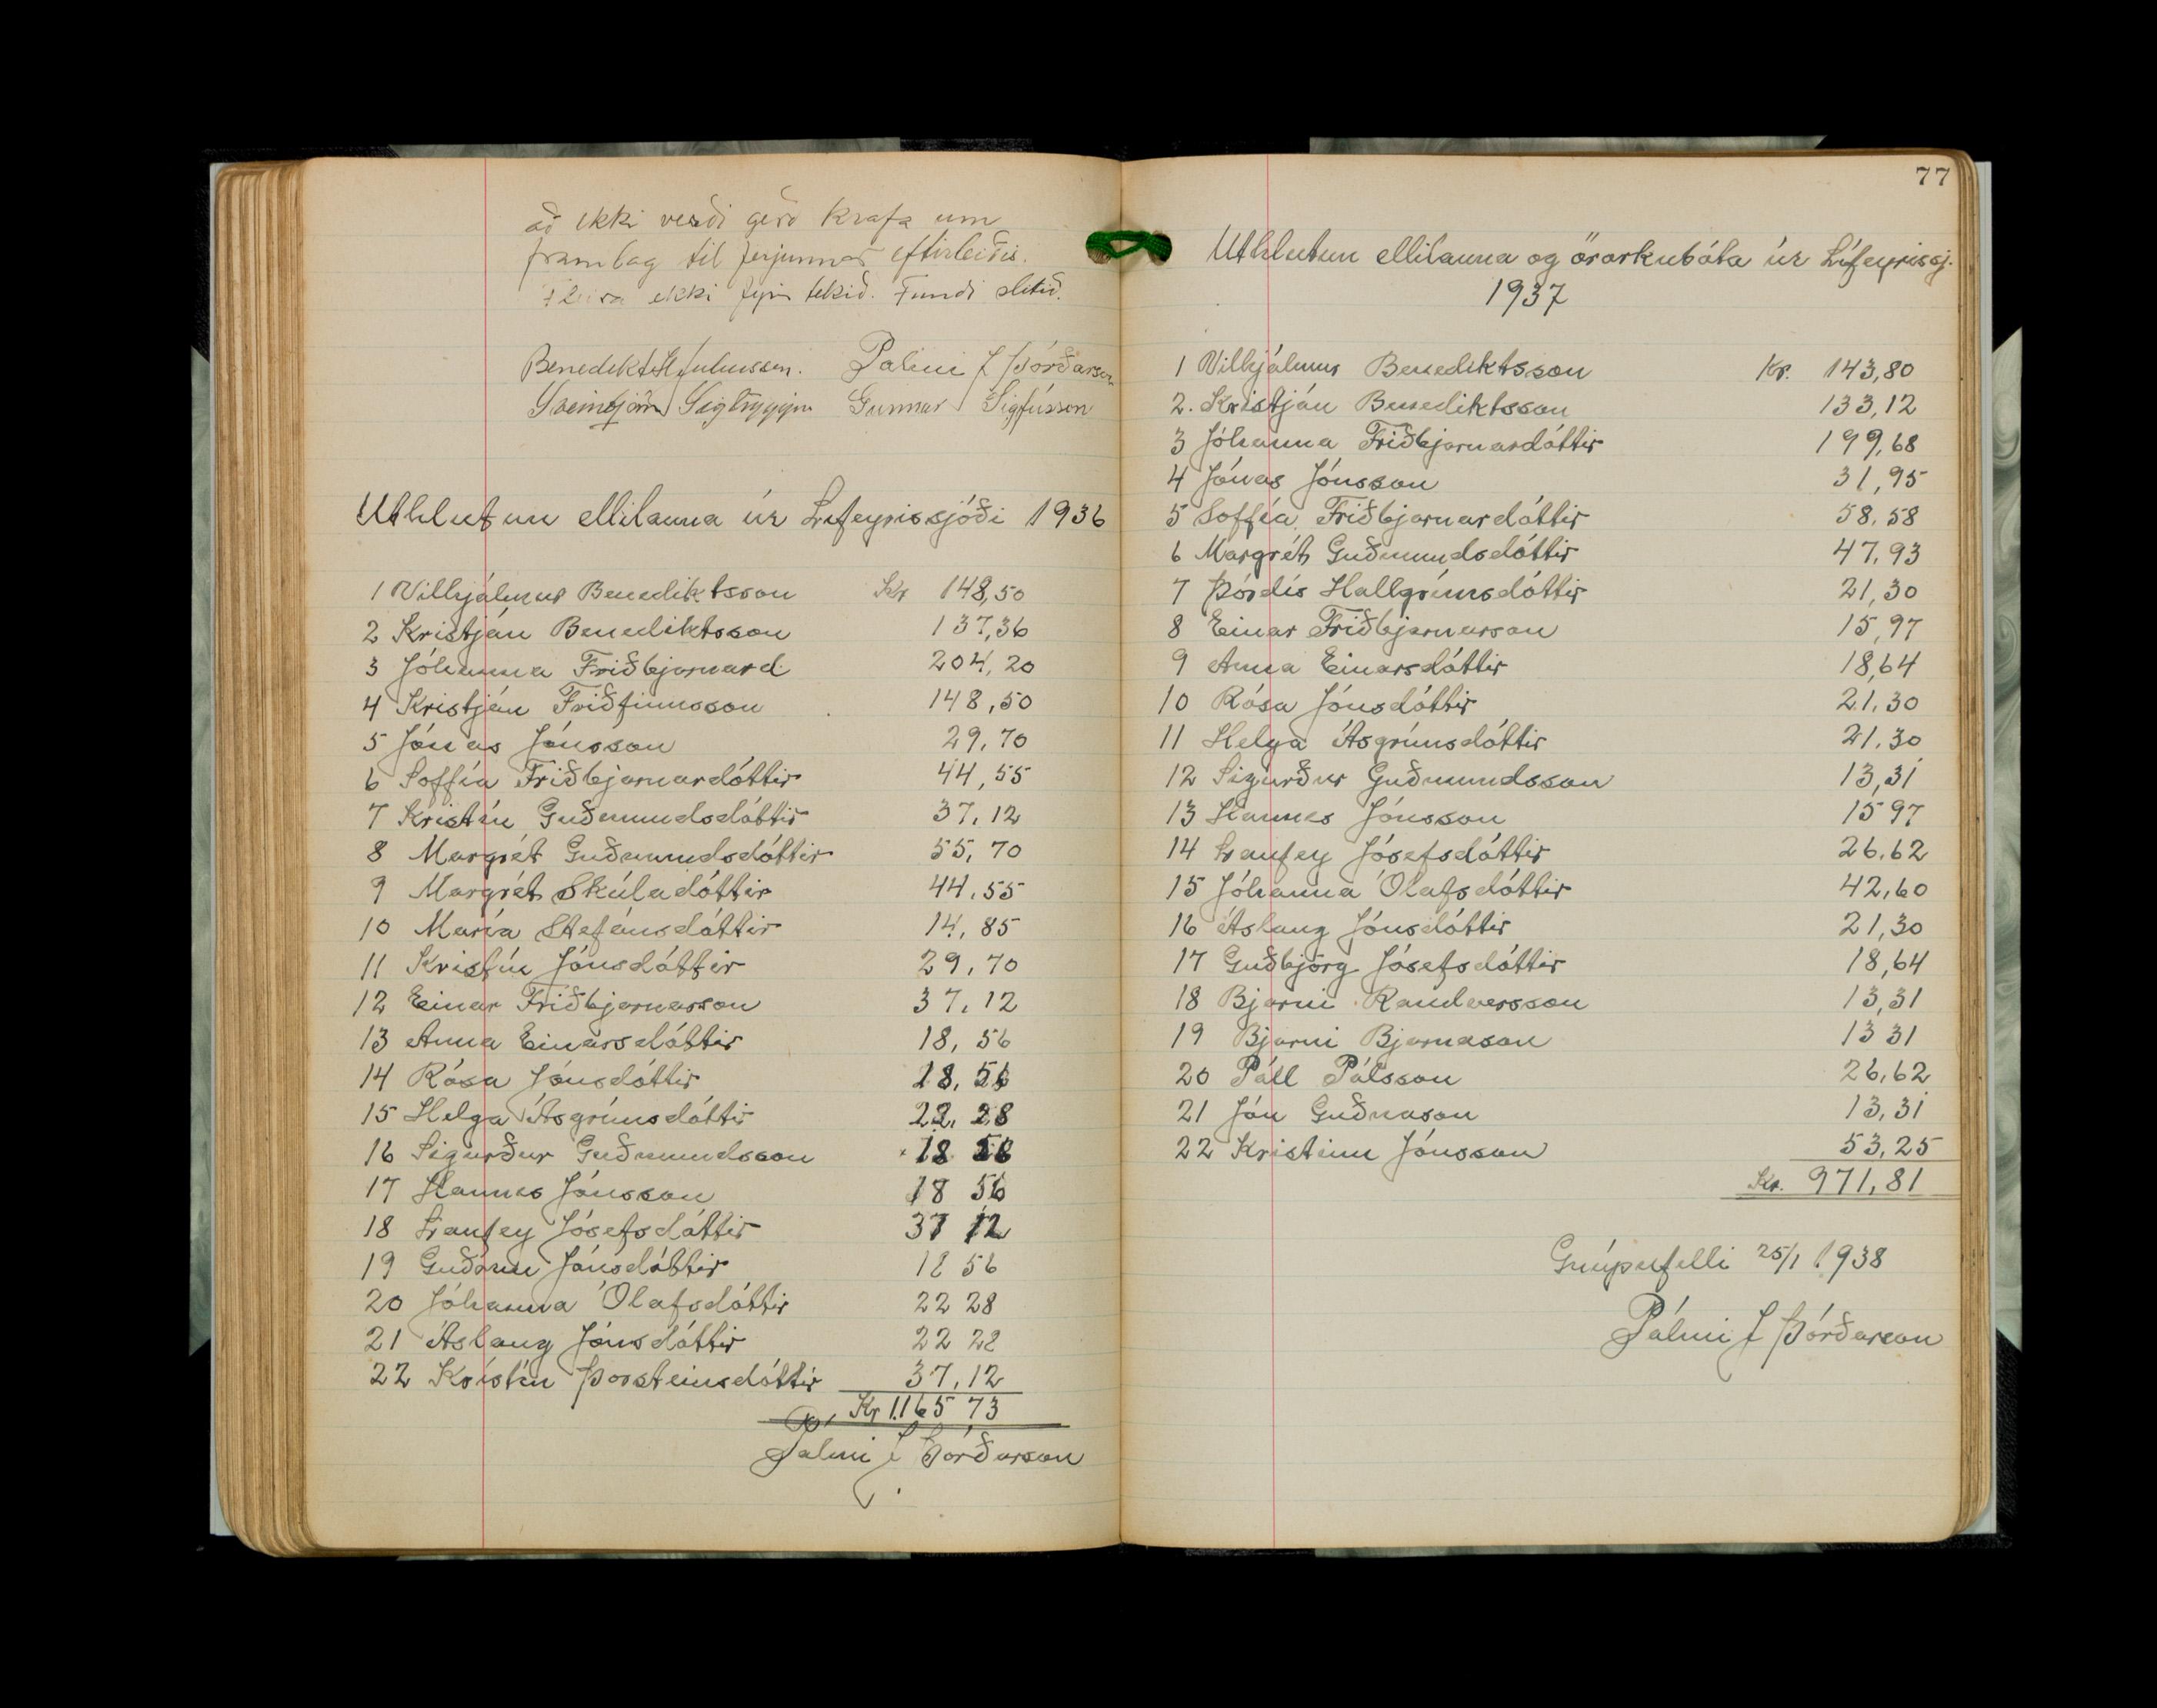 að ekki verði gerð krafa um
framlag til ferjunnar eftirleiðis.
Fleira ekki fyrir tekið. Fundi slitið.
Benedikt H Júliusson. Pálmi J Þórðarson
Sveinbjörn Sigtryggss Gunnar Sigfússon
Uthlutun ellilauna úr Lífeyrissjóði 1936
1 Vilhjálmur Benediktsson Kr 148,50
2 Kristján Benediktsson 137,36
3 Jóhanna Friðbjarnard 204,20
4 Kristján Friðfinnsson 148,50
5 Jónas Jónsson 29,70
6 Soffía Friðbjarnardóttir 44,55
7 Kristín Guðmundsdóttir 37,12
8 Margrét Guðmundsdóttir 55,70
9 Margrét Skúladóttir 44,55
10 María Stefánsdóttir 14,85
11 Kristín Jónsdóttir 29,70
12 Einar Friðbjarnarson 37,12
13 Anna Einarsdóttir 18,56
14 Rósa Jónsdóttir 18,56
15 Helga Ásgrímsdóttir 22,28
16 Sigurður Guðmundsson 18 56
17 Hannes Jónsson 18 56
18 Laufey Jósefsdóttir 37 12
19 Guðrún Jónsdóttir 18 56
20 Jóhanna Ólafsdóttir 22 28
21 Áslaug Jónsdóttir 22 28
22 Kristín Þorsteinsdóttir 37,12
Kr 1.165 73
Pálmi J Þórðarson
77
Uthlutun ellilauna og örorkubóta úr Lífeyrissj.
1937
1 Vilhjálmur Benediktsson Kr. 143,80
2. Kristján Benediktsson 133,12
3 Jóhanna Friðbjarnardóttir 199,68
4 Jónas Jónsson 31,95
5 Soffía Friðbjarnardóttir 58,58
6 Margrét Guðmundsdóttir 47,93
7 Þórdís Hallgrímsdóttir 21,30
8 Einar Friðbjarnarson 15,97
9 Anna Einarsdóttir 18,64
10 Rósa Jónsdóttir 21,30
11 Helga Ásgrímsdóttir 21,30
12 Sigurður Guðmundsson 13,31
13 Hannes Jónsson 15 97
14 Laufey Jósefsdóttir 26,62
15 Jóhanna Ólafsdóttir 42,60
16 Áslaug Jónsdóttir 21,30
17 Guðbjörg Jósefsdóttir 18,64
18 Bjarni Randversson 13,31
19 Bjarni Bjarnason 13 31
20 Páll Pálsson 26,62
21 Jón Guðnason 13,31
22 Kristinn Jónsson 53,25
Kr. 971,81
Gnúpufelli 25/1 1938
Pálmi J Þórðarson